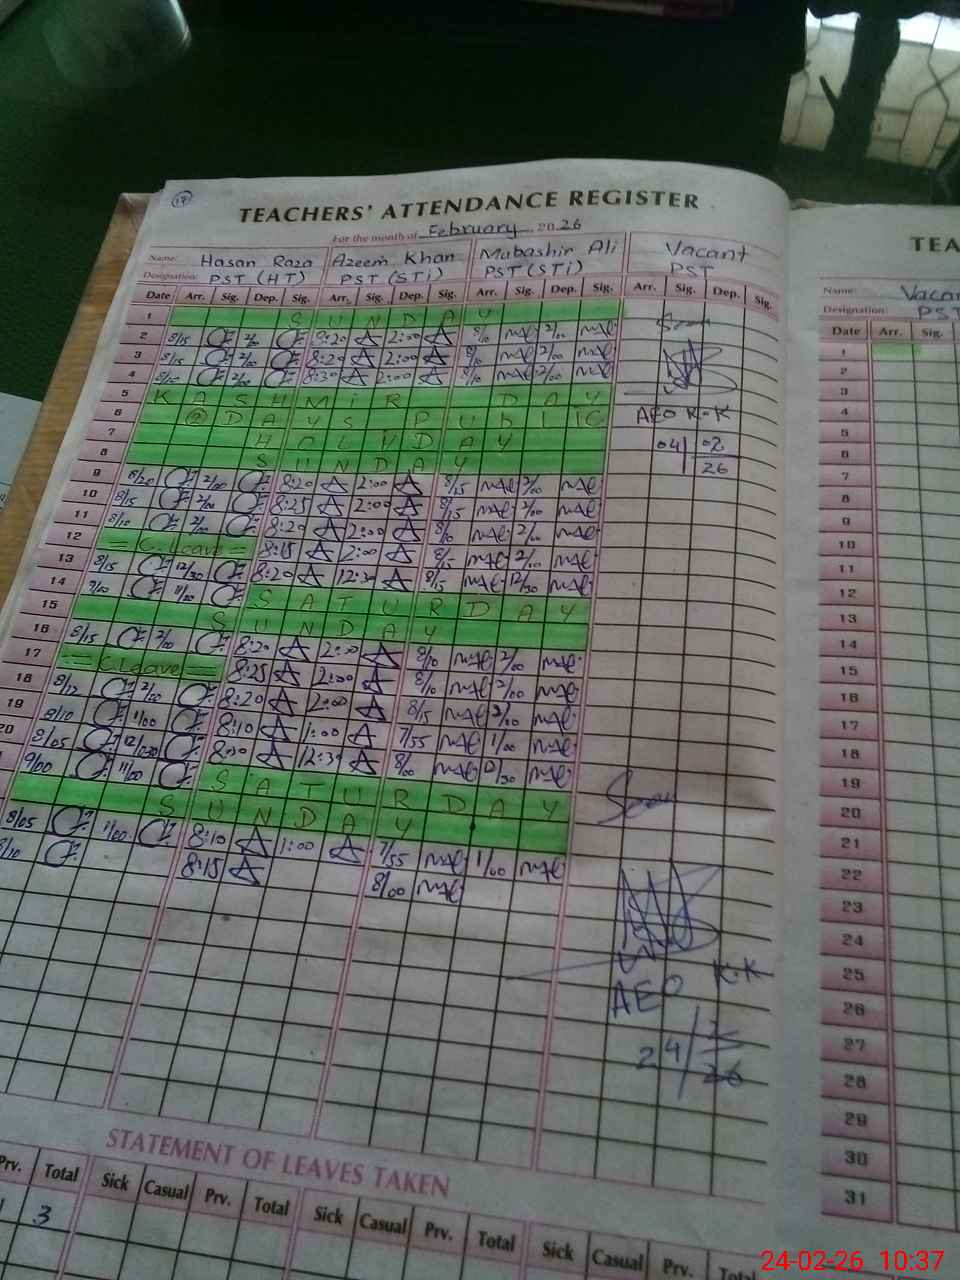 17
TEACHERS' ATTENDANCE REGISTER
For the month of February 2026
Name: Hasan Raza Azeem Khan Mubashir Ali Vacant
Designation: PST (HT) PST (STi) PST (STi) PST
Date Arr. Sig. Dep. Sig. Arr. Sig. Dep. Sig. Arr. Sig. Dep. Sig. Arr. Sig. Dep. Sig.
1 SUNDAY
2 8/15 2/00 8:20 2:00 8/10 2/00
3 8/15 2/00 8:20 2:00 8/10 2/00
4 8/10 2/00 8:30 2:00 8/10 2/00
5 KASHMIR DAY
6 @ DAYS PUbLIC
7 HOLYDAY
8 SUNDAY
9 8/20 2/00 8:20 2:00 8/15 2/00
10 8/15 2/00 8:25 2:00 8/15 2/00
11 8/10 2/00 8:20 2:00 8/10 2/00
12 = C.Leave = 8:15 2:00 8/15 2/00
13 8/15 12/30 8:20 12:30 8/15 12/30
14 SATURDAY
15 SUNDAY
16 8/15 2/00 8:20 2:00 8/10 2/00
17 = C.Leave = 8:25 2:00 8/10 2/00
18 8/12 2/00 8:20 2:00 8/15 2/00
19 8/10 1/00 8:10 1:00 7/55 1/00
20 8/05 12/30 8:00 12:30 8/00 12/30
9/00 11/00 SATURDAY
SUNDAY
8/05 1/00 8:10 1:00 7/55 1/00
8/10 8:15 8/00
Seen
AEO K-K
04/02/26
Seen
AEO K-K
24/2/26
STATEMENT OF LEAVES TAKEN
Prv. Total Sick Casual Prv. Total Sick Casual Prv. Total Sick Casual Prv. Total
3
TEA
Name: Vacan
Designation: PST
Date Arr. Sig.
1
2
3
4
5
6
7
8
9
10
11
12
13
14
15
16
17
18
19
20
21
22
23
24
25
26
27
28
29
30
31
24-02-26 10:37